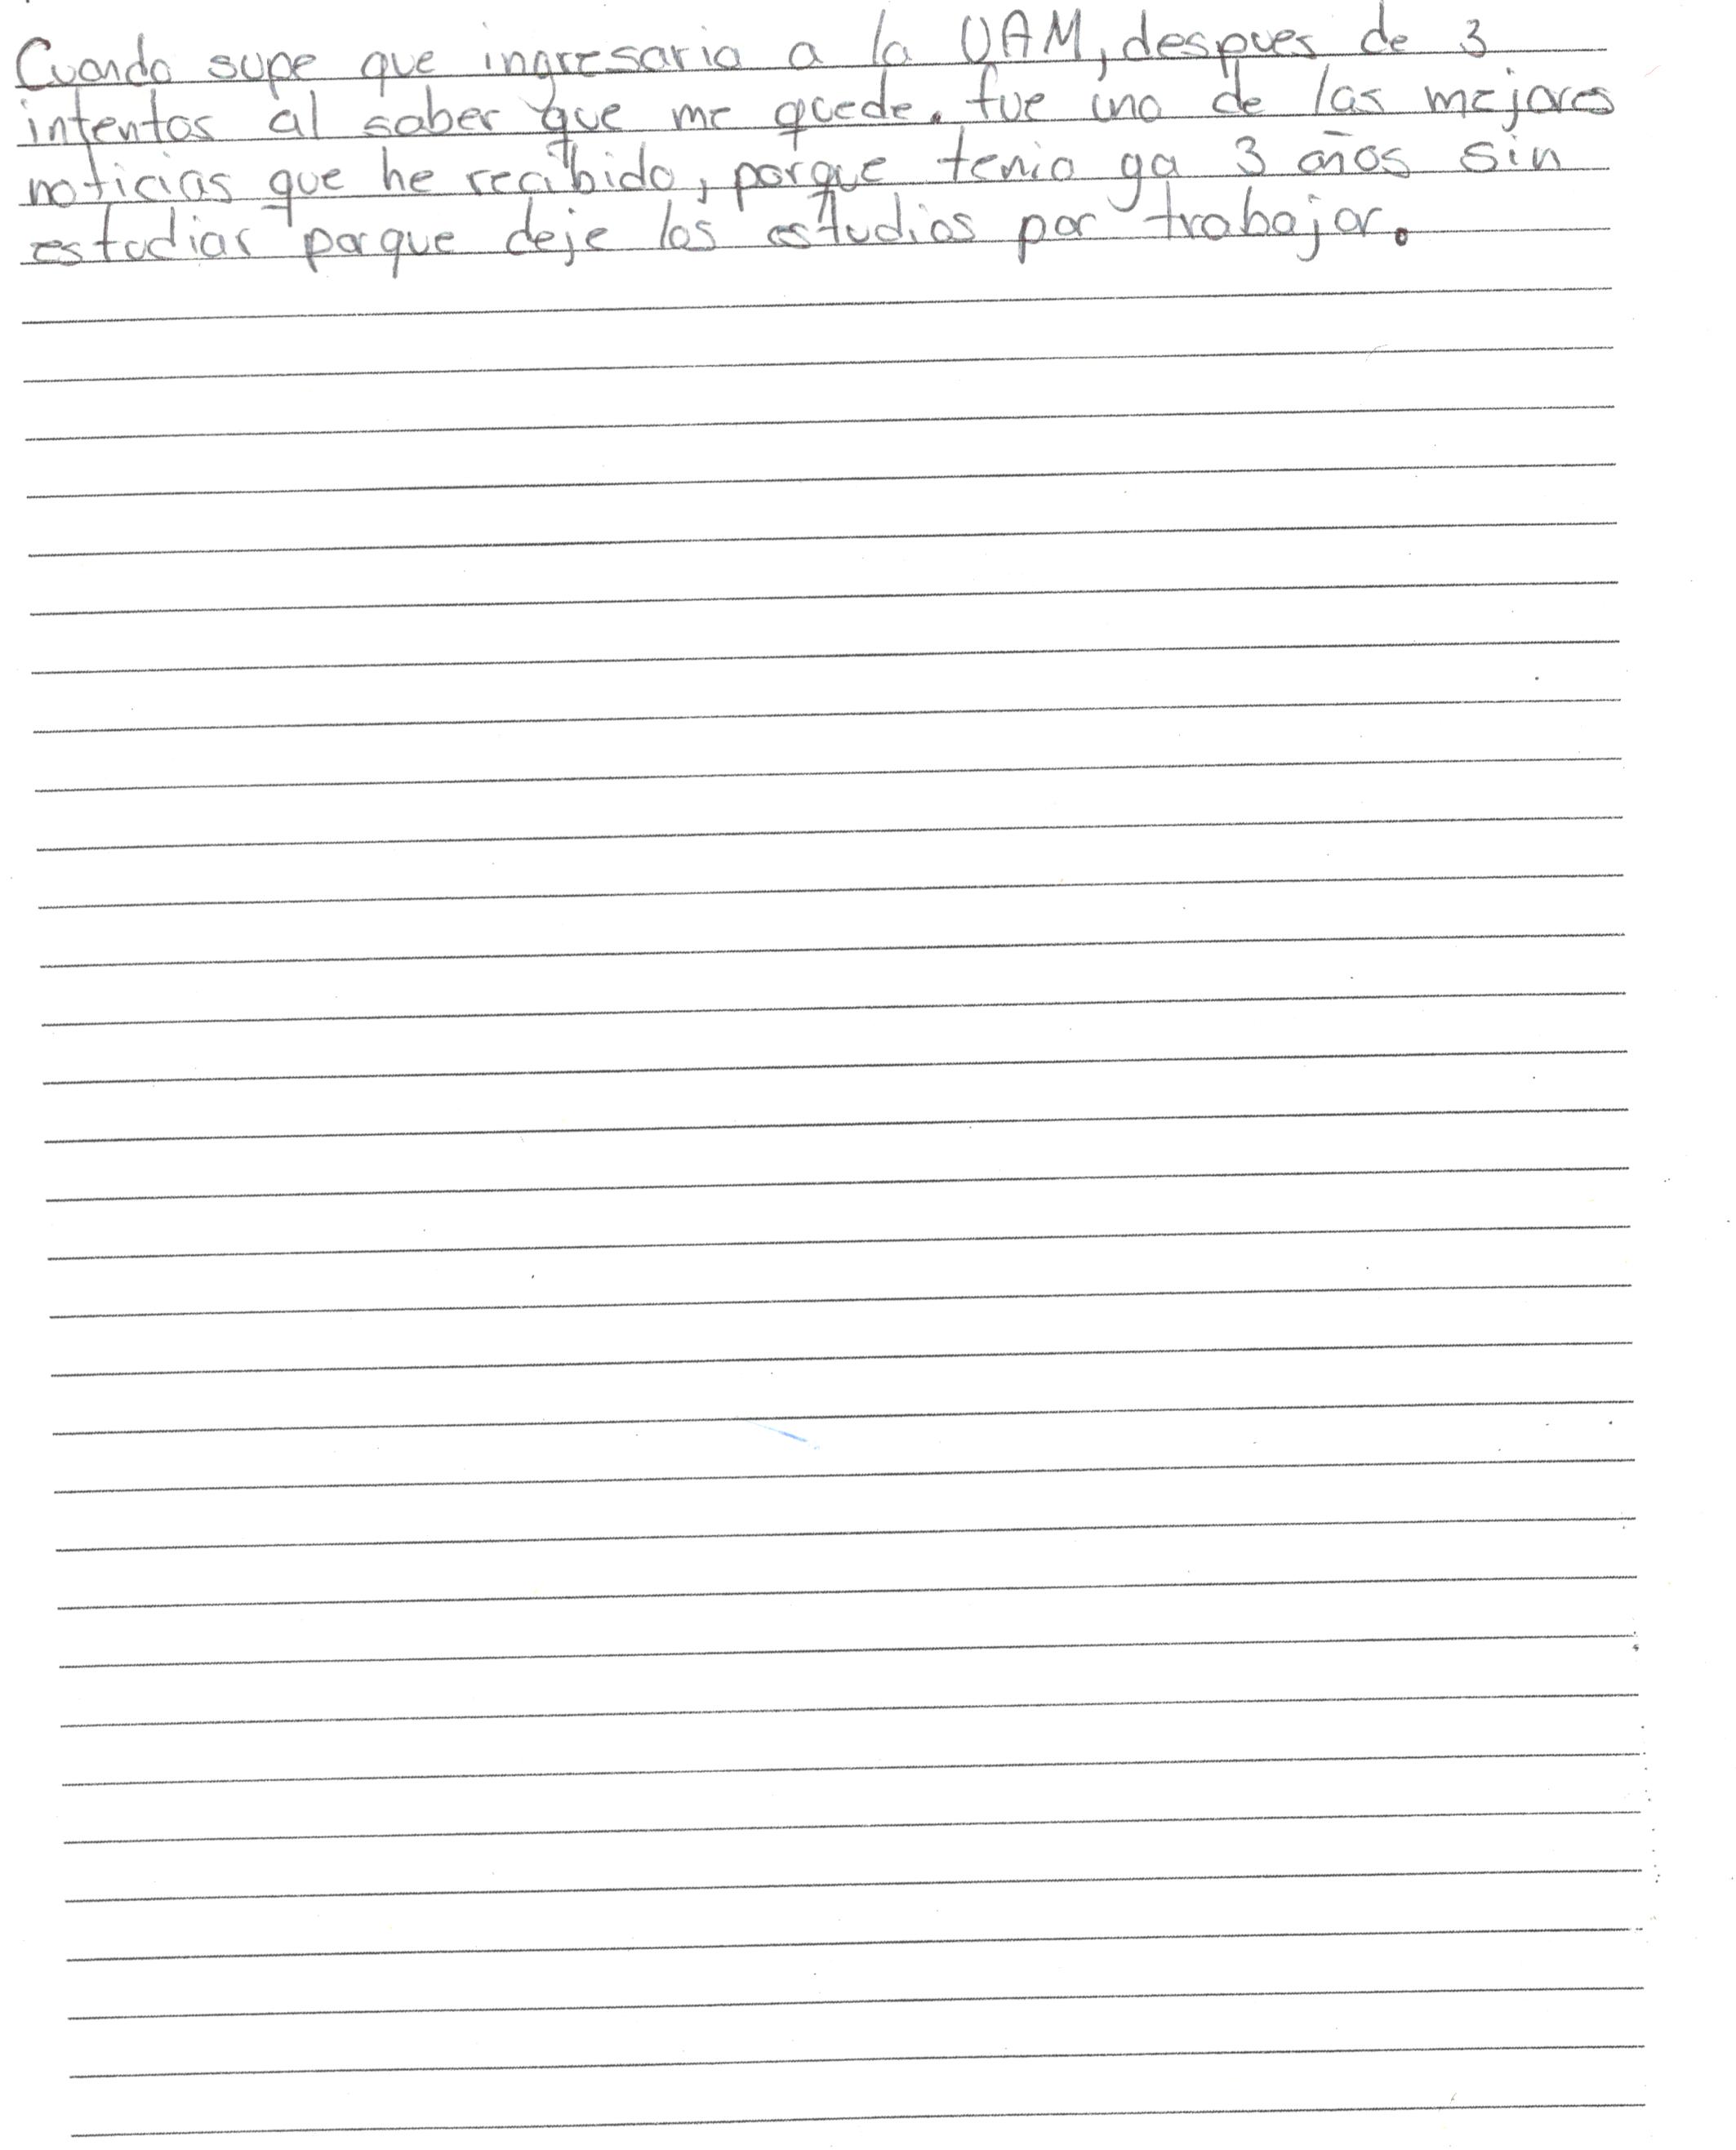 Cuando supe que ingresaria a la UAM, despues de 3
intentos al saber que me quede. fue una de las mejores
noticias que he recibido, porque tenia ya 3 años sin
estudiar porque deje los estudios por trabajar.